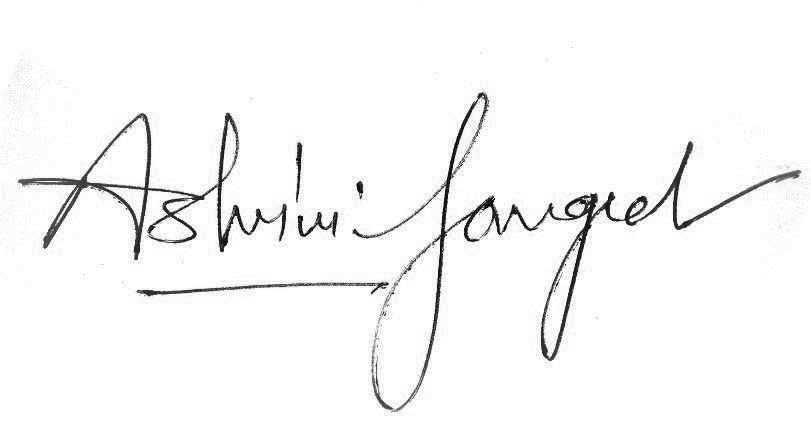 Ashwini Jangid